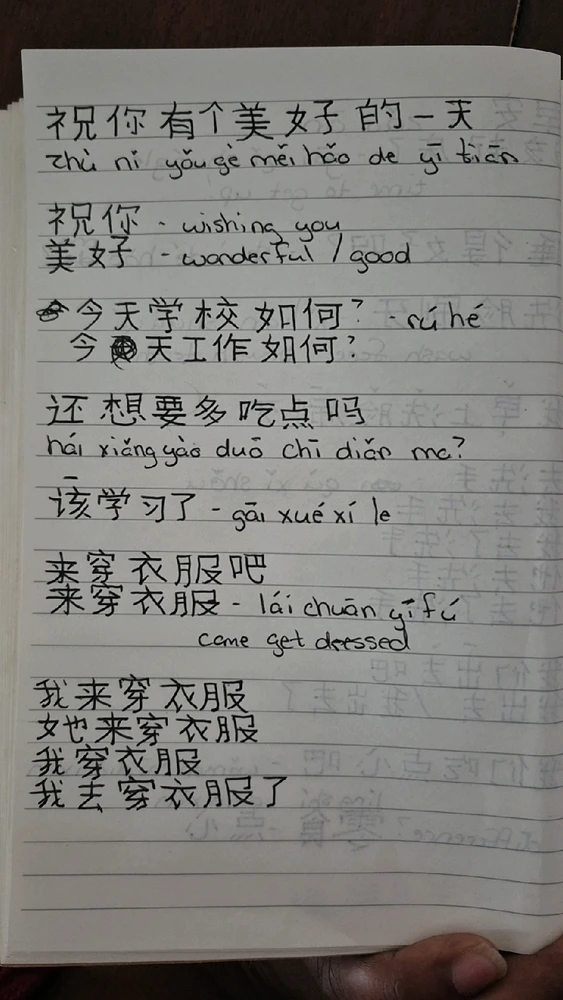 祝你有个美好的一天
zhù nǐ yǒu gè měi hǎo de yī tiān
祝你 - wishing you
美好 - wonderful / good
今天学校如何? - rú hé
今天工作如何?
还想要多吃点吗
hái xiǎng yào duō chī diǎn ma?
该学习了 - gāi xué xí le
来穿衣服吧
来穿衣服 - lái chuān yī fú
come get deessed
我来穿衣服
她来穿衣服
我穿衣服
我去穿衣服了